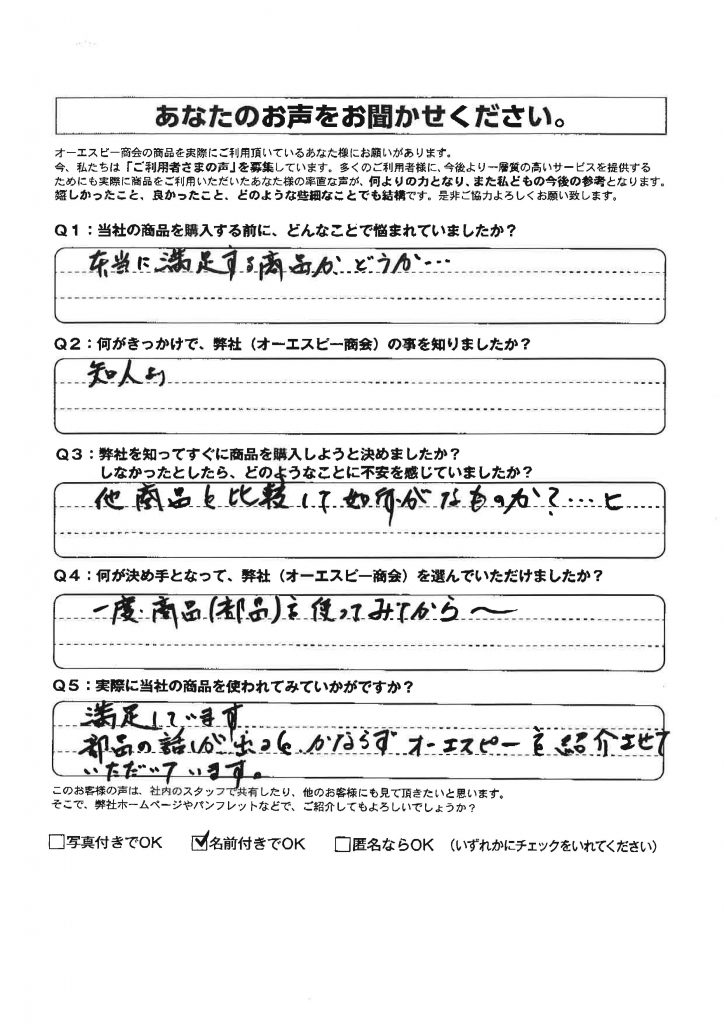 あなたのお声をお聞かせください。
オーエスビー商会の商品を実際にご利用頂いているあなた様にお願いがあります。
今、私たちは「ご利用者さまの声」を募集しています。多くのご利用者様に、今後より一層質の高いサービスを提供する
ためにも実際に商品をご利用いただいたあなた様の率直な声が、何よりの力となり、また私どもの今後の参考となります。
嬉しかったこと、良かったこと、どのような些細なことでも結構です。是非ご協力よろしくお願い致します。
Q1：当社の商品を購入する前に、どんなことで悩まれていましたか？
本当に満足する商品かどうか…
Q2：何がきっかけで、弊社（オーエスビー商会）の事を知りましたか？
知人より
Q3：弊社を知ってすぐに商品を購入しようと決めましたか？
しなかったとしたら、どのようなことに不安を感じていましたか？
他商品と比較して如何なものか？…と
Q4：何が決め手となって、弊社（オーエスビー商会）を選んでいただけましたか？
一度商品(部品)を使ってみてから〜
Q5：実際に当社の商品を使われてみていかがですか？
満足しています
部品の話しが出るとかならずオーエスビーを紹介させて
いただいています。
このお客様の声は、社内のスタッフで共有したり、他のお客様にも見て頂きたいと思います。
そこで、弊社ホームページやパンフレットなどで、ご紹介してもよろしいでしょうか？
□写真付きでOK ☑名前付きでOK □匿名ならOK （いずれかにチェックをいれてください）